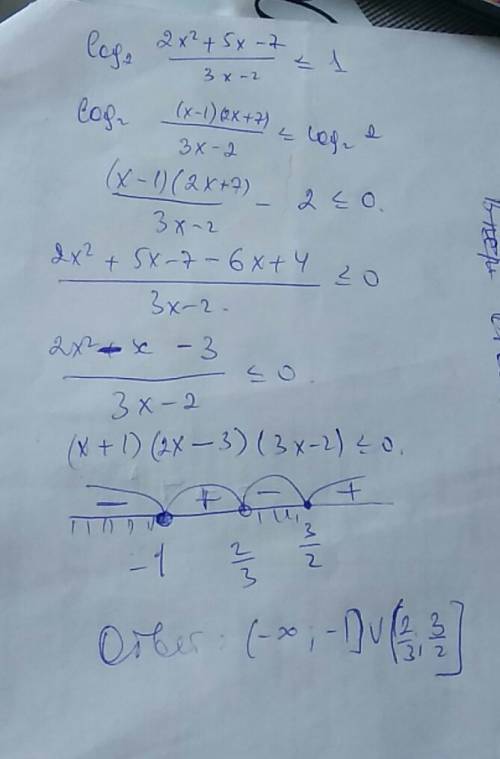 log₂ (2x² + 5x - 7)/(3x - 2) ≤ 1
log₂ ((x-1)(2x+7))/(3x - 2) ≤ log₂ 2
((x-1)(2x+7))/(3x-2) - 2 ≤ 0.
(2x² + 5x - 7 - 6x + 4)/(3x-2) ≤ 0
(2x² - x - 3)/(3x - 2) ≤ 0.
(x+1)(2x-3)(3x-2) ≤ 0.
- + - +
-1 2/3 3/2
Ответ: (-∞; -1]∪(2/3; 3/2]